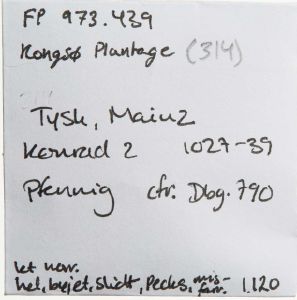 FP 973.439
Kongsø Plantage (314)
Tysk, Mainz
Konrad 2 1027-39
Pfennig cfr. Dbg. 790
let korr.
hel, bøjet, slidt, Pecks, mis-
farv. 1.120